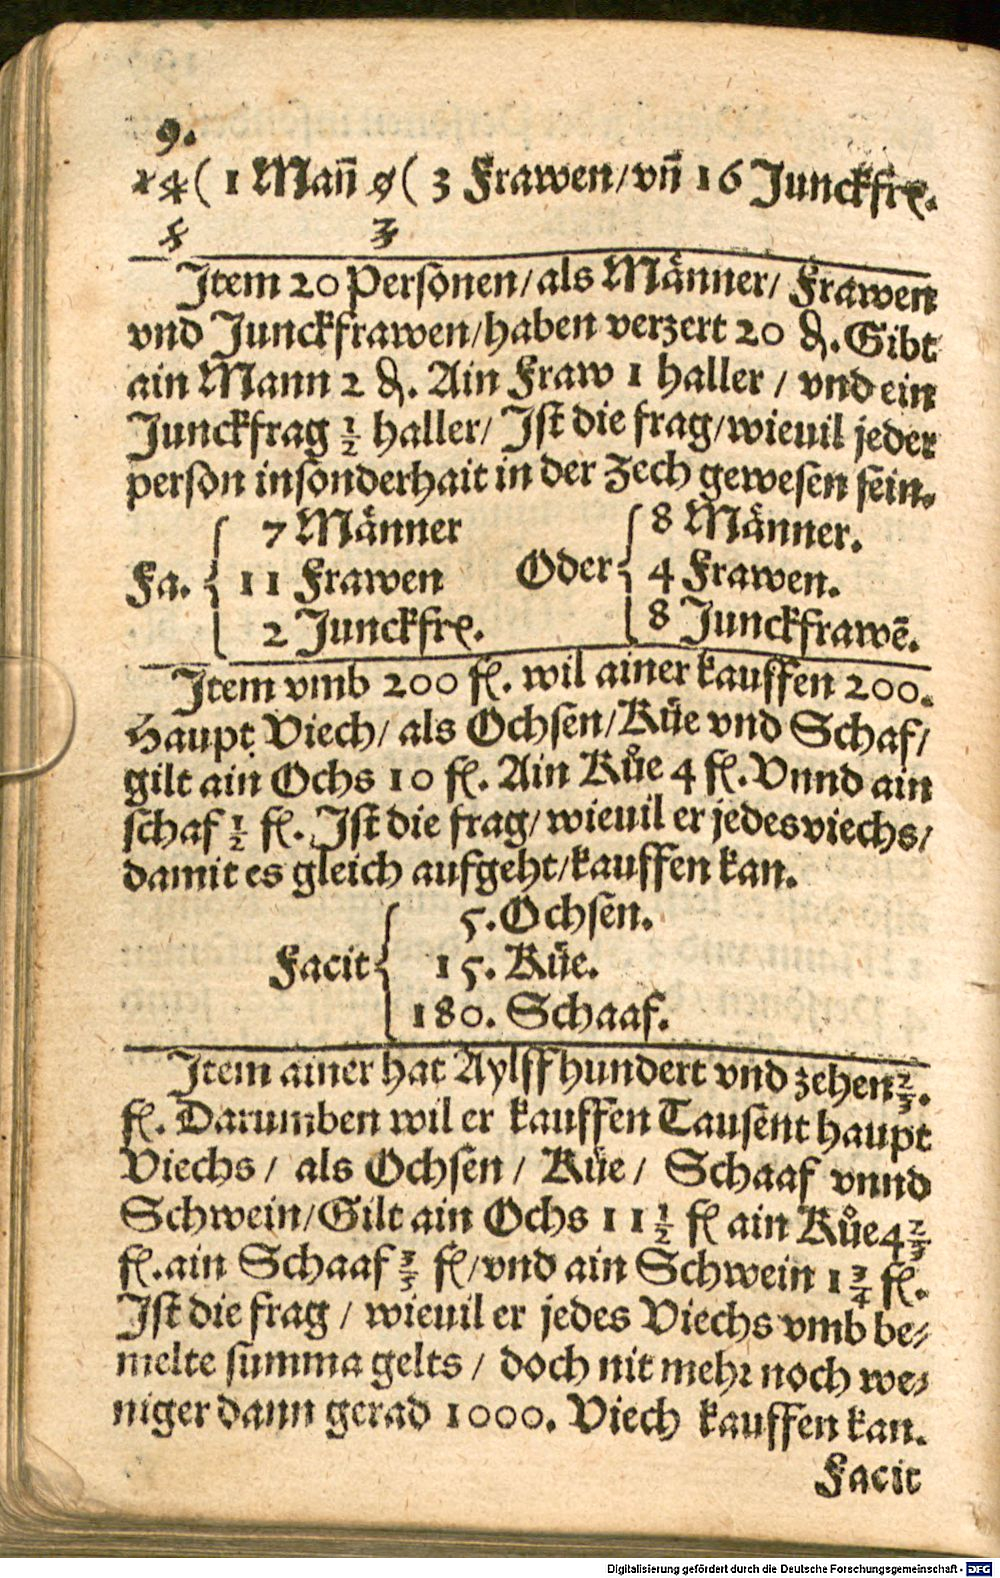 9.
14( 1 Man̄ 0( 3 Frawen/ vn̄ 16 Junckfrẽ.
5 3
Jtem 20 Personen/ als Männer/ Frawen
vnd Junckfrawen/ haben verzert 20 ₰. Gibt
ain Mann 2 ₰. Ain Fraw 1 haller / vnd ein
Junckfrag ½ haller/ Jst die frag/ wieuil jeder
person insonderhait in der Zech gewesen sein.
7 Männer 8 Männer.
Fa. { 11 Frawen Oder { 4 Frawen.
2 Junckfrẽ. 8 Junckfrawẽ.
Jtem vmb 200 fl. wil ainer kauffen 200.
Haupt Viech/ als Ochsen/ Küe vnd Schaf/
gilt ain Ochs 10 fl. Ain Kůe 4 fl. Vnnd ain
schaf ½ fl. Jst die frag/ wieuil er jedes viechs/
damit es gleich aufgeht/ kauffen kan.
5. Ochsen.
Facit { 15. Küe.
180. Schaaf.
Jtem ainer hat Aylff hundert vnd zehen ⅔.
fl. Darumben wil er kauffen Tausent haupt
Viechs / als Ochsen / Küe / Schaaf vnnd
Schwein/ Gilt ain Ochs 11½ fl ain Kůe 4⅔
fl. ain Schaaf ⅗ fl/ vnd ain Schwein 1¾ fl.
Jst die frag / wieuil er jedes Viechs vmb be⸗
melte summa gelts / doch nit mehr noch we⸗
niger dann gerad 1000. Viech kauffen kan.
Facit
Digitalisierung gefördert durch die Deutsche Forschungsgemeinschaft - DFG